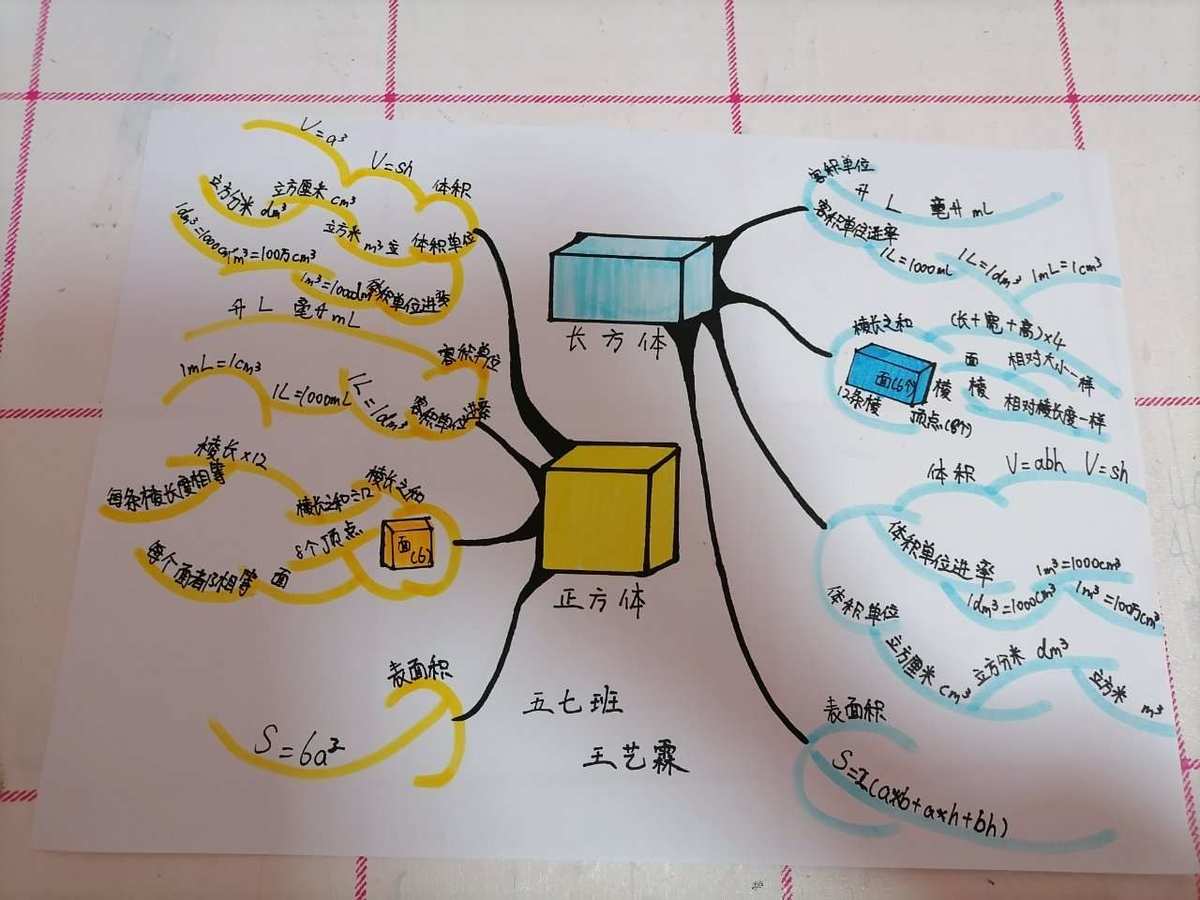 V=a³
V=sh
体积
立方分米 dm³
立方厘米 cm³
立方米 m³
体积单位
1dm³=1000cm³
1m³=100万cm³
1m³=1000dm³
容积单位进率
升 L 毫升 mL
容积单位
1mL=1cm³
1L=1000mL
1L=1dm³
容积单位进率
棱长×12
每条棱长度相等
棱长之和÷12
棱长之和
8个顶点
面(6)
每个面都相等
面
表面积
S=6a²
长方体
正方体
五七班
王艺霖
容积单位
升 L 毫升 mL
容积单位进率
1L=1000mL
1L=1dm³
1mL=1cm³
棱长之和
(长+宽+高)×4
面 相对大小一样
面(6个)
棱 棱
相对棱长度一样
12条棱
顶点(8个)
体积
V=abh
V=sh
体积单位进率
1m³=1000cm³
1dm³=1000cm³
1m³=100万cm³
体积单位
立方厘米 cm³
立方分米 dm³
立方米 m³
表面积
S=2(a×b+a×h+bh)